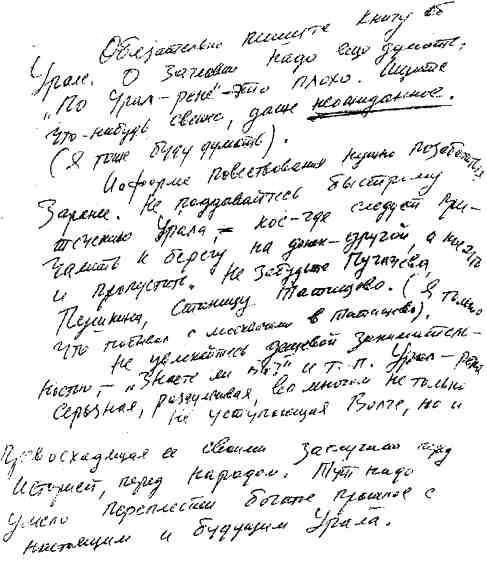 Обязательно пишите книгу об
Урале. О заглавии надо еще думать:
"По Урал-реке" - это плохо. Ищите
что-нибудь свежее, даже неожиданное.
(Я тоже буду думать).
И о форме повествования нужно позаботиться
заранее. Не поддавайтесь быстрому
течению Урала, - кое-где следует при-
чалить к берегу на денек-другой, а кое-что
и пропустить. Не забудьте Пугачева,
Пушкина, станицу Татищево. (Я только
что побывал с москвичами в Татищево).
Не увлекайтесь дешевой занимательн-
ностью, - "Знаете ли вы?" и т.п. Урал-река
серьезная, раздумчивая, во многом не только
не уступающая Волге, но и
превосходящая ее своими заслугами перед
историей, перед народом. Тут надо
умело переплести богатое прошлое с
настоящим и будущим Урала.